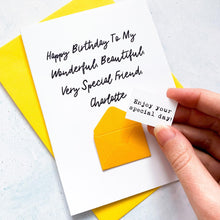 Happy Birthday To My
Wonderful, Beautiful,
Very Special Friend,
Charlotte
Enjoy your
special day!